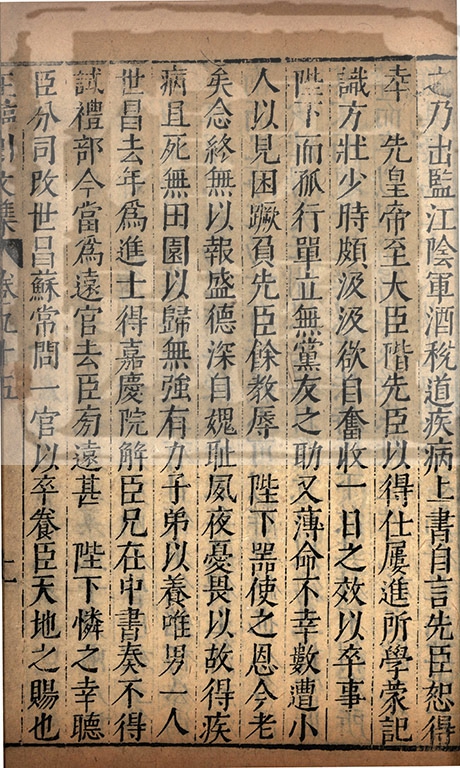 之乃出監江陰軍酒稅道疾病上書自言先臣恕得
幸　先皇帝至大臣階先臣以得仕屢進所學蒙記
識方壯少時頗汲汲欲自奮收一日之效以卒事
陛下而孤行單立無黨友之助又薄命不幸數遭小
人以見困蹶負先臣餘教辱　陛下器使之恩今老
矣念終無以報盛德深自媿耻夙夜憂畏以故得疾
病且死無田園以歸無強有力子弟以養唯男一人
世昌去年爲進士得嘉慶院解臣兄在中書奏不得
試禮部今當爲遠官去臣旁遠甚　陛下憐之幸聽
臣分司改世昌蘇常問一官以卒養臣天地之賜也
王臨川文集　卷九十五